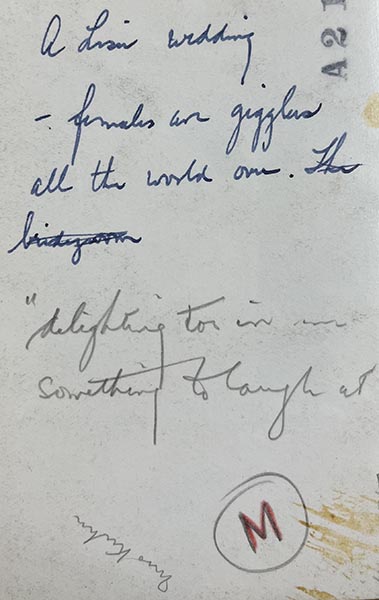 A Lisu wedding
- females are gigglers
all the world over. The
bridegroom
"delighting too in
something to laugh at
M
A21